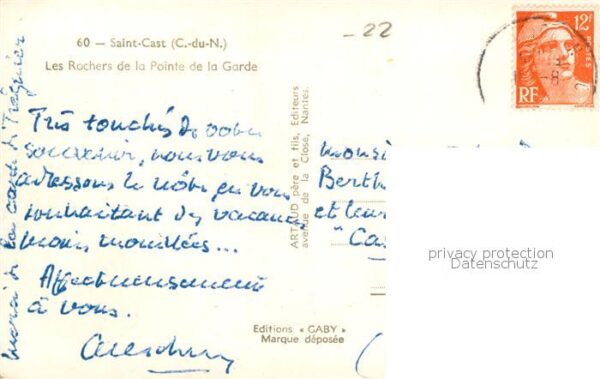 60 — Saint-Cast (C.-du-N.)
Les Rochers de la Pointe de la Garde
-22
12F
POSTES
RF
Très touchés de votre
souvenir, nous vous
adressons le nôtre en vous
souhaitant des vacances
moins mouillées...
Affectueusement
à vous.
Merci de la carte de Tréguier
ARTAUD père et fils, Editeurs
avenue de la Close, Nantes.
Monsi
Berth
et leur
"Ca
privacy protection
Datenschutz
Editions « GABY »
Marque déposée